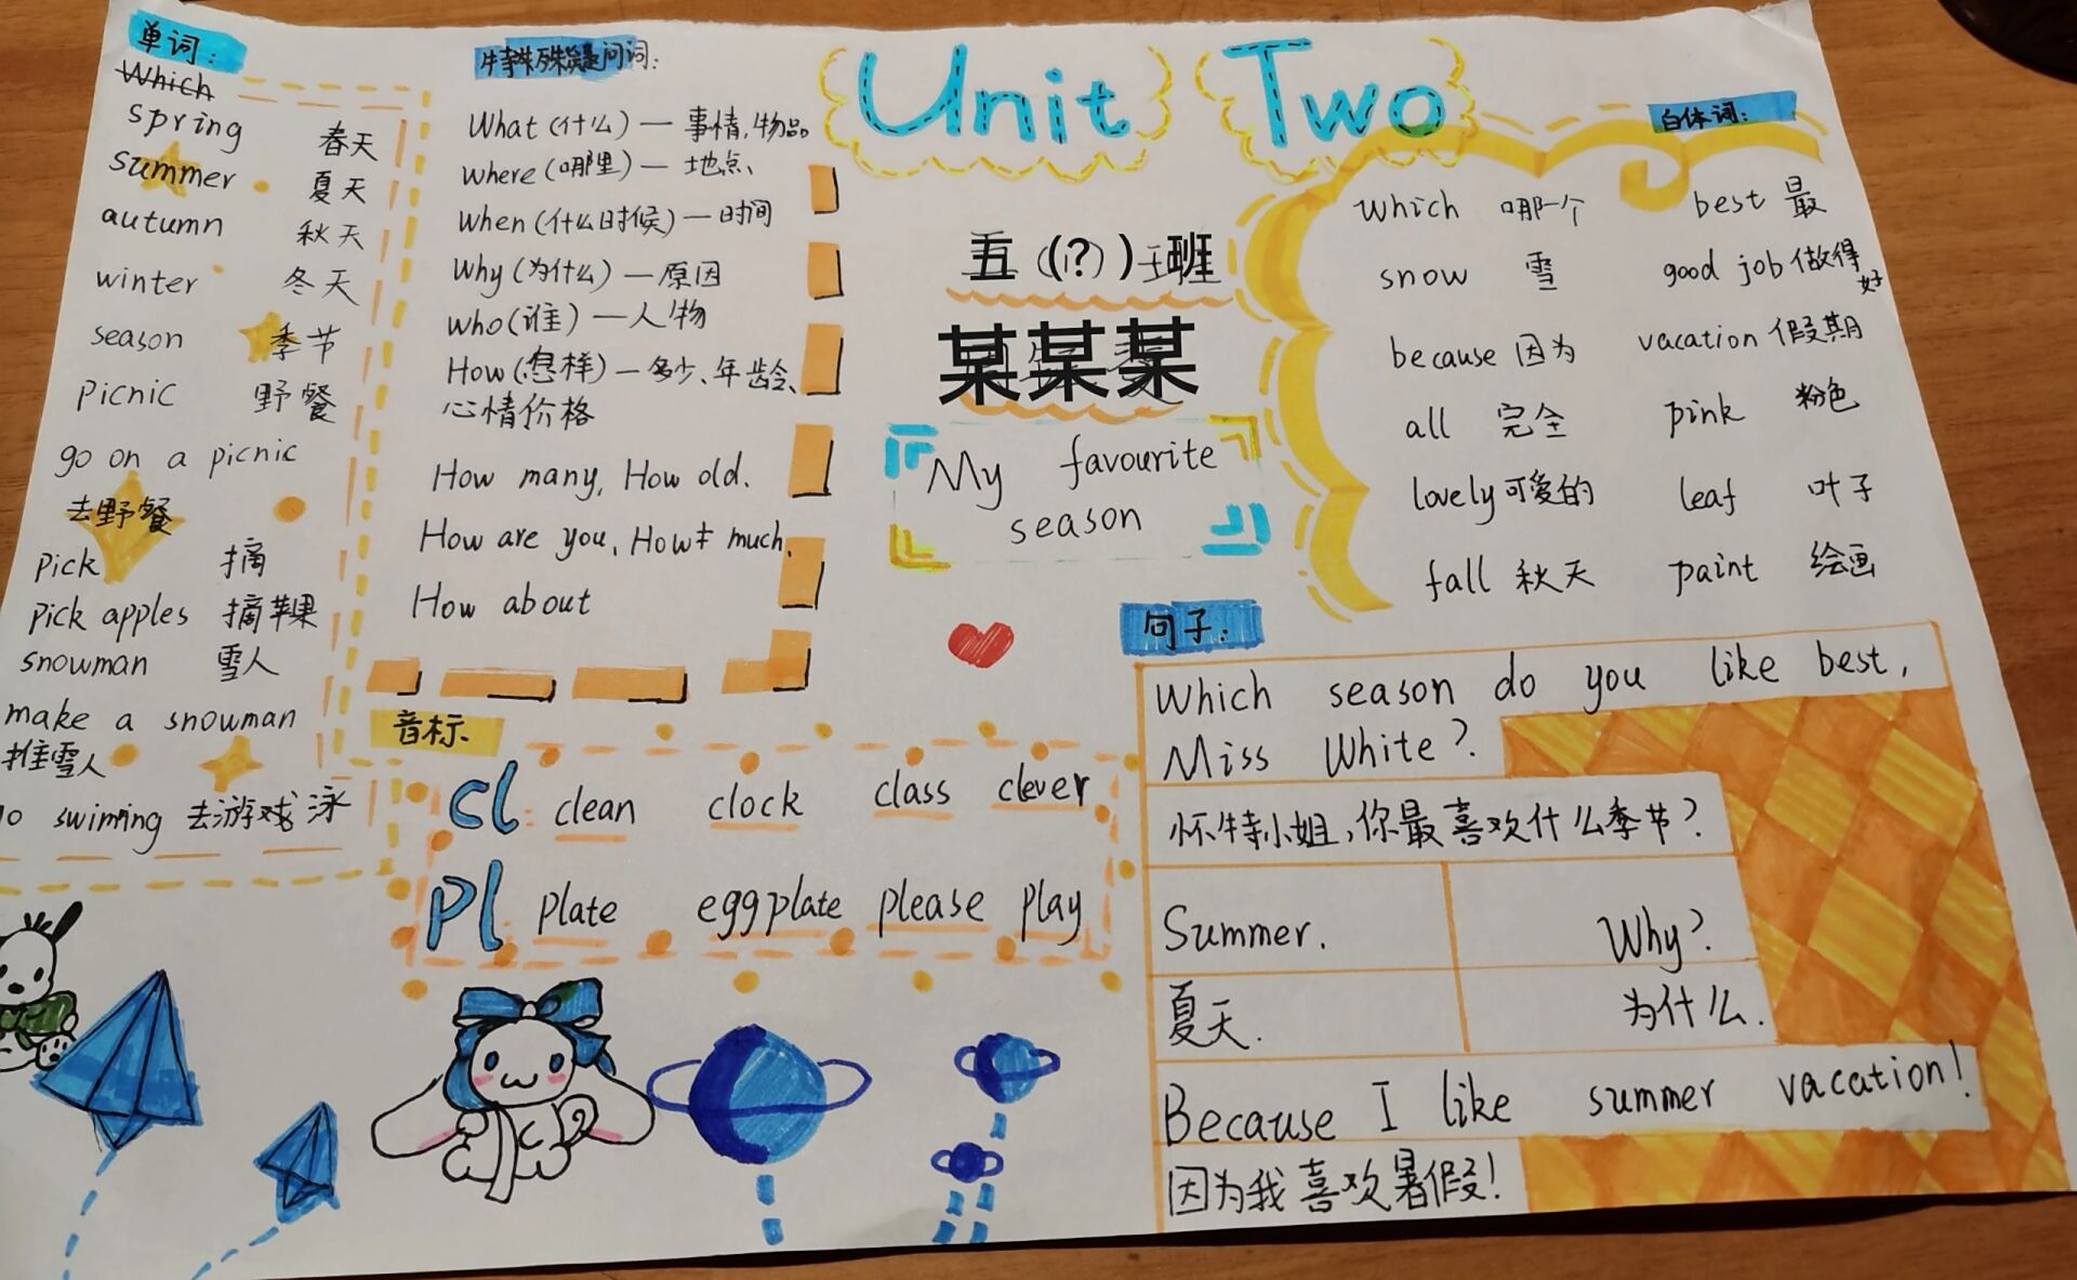 单词:
Which
spring 春天
summer 夏天
autumn 秋天
winter 冬天
season 季节
picnic 野餐
go on a picnic
去野餐
pick 摘
pick apples 摘苹果
snowman 雪人
make a snowman
堆雪人
swiming 去游戏泳
特殊疑问词:
What (什么) — 事情,物品
where (哪里) — 地点、
when (什么时候) — 时间
Why (为什么) — 原因
who (谁) — 人物
How (怎样) — 多少、年龄、
心情价格
How many, How old.
How are you, How much.
How about
Unit Two
五 (?) 班
某某某
My favourite
season
白体词:
which 哪一个 best 最
snow 雪 good job 做得好
because 因为 vacation 假期
all 完全 pink 粉色
lovely 可爱的 leaf 叶子
fall 秋天 paint 绘画
音标
cl clean clock class clever
Pl plate eggplate please play
句子:
Which season do you like best,
Miss White?
怀特小姐,你最喜欢什么季节?
Summer. Why?
夏天. 为什么.
Because I like summer vacation!
因为我喜欢暑假!